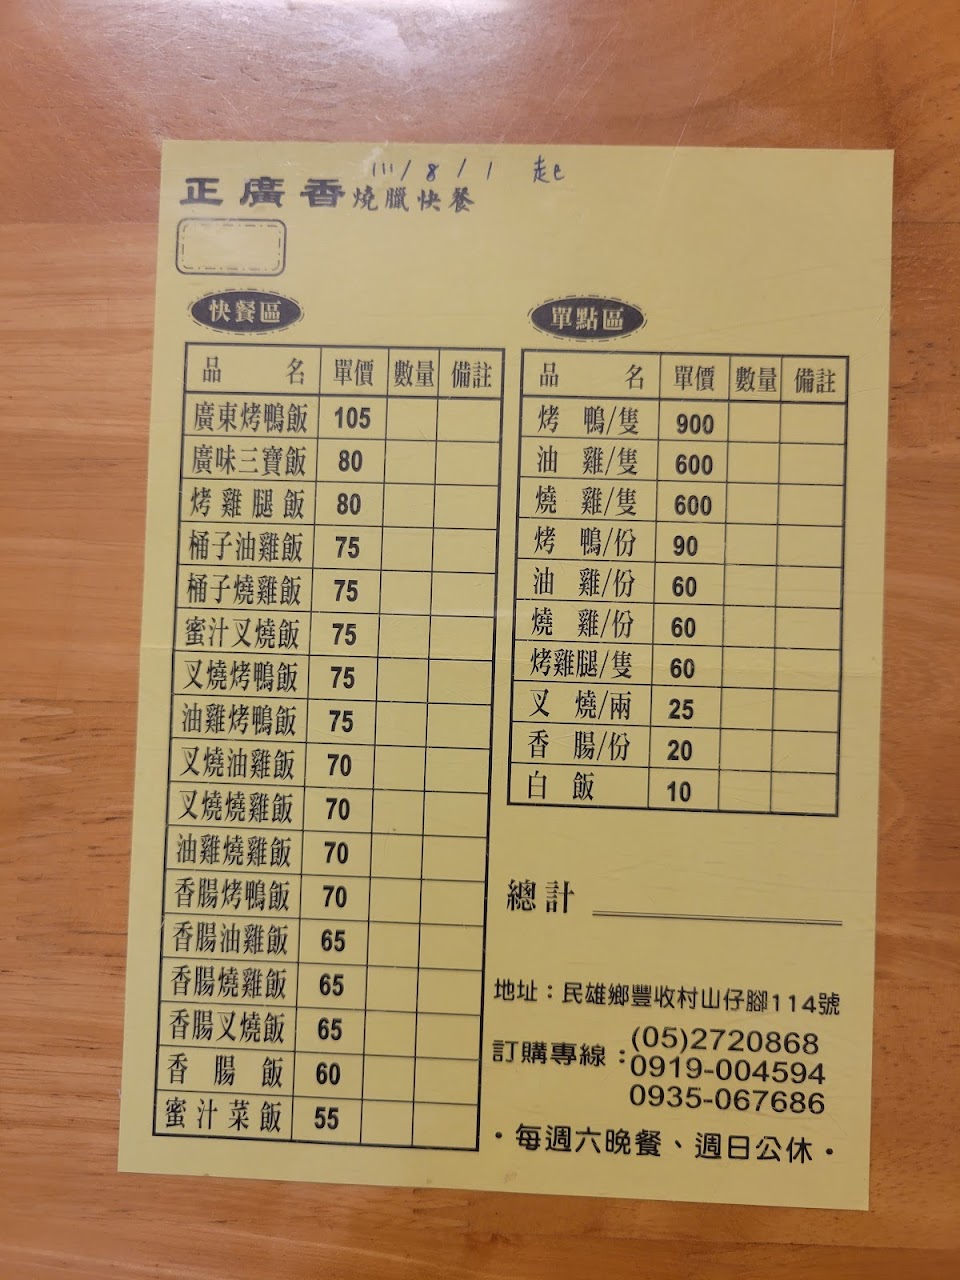 111/8/1 起
正廣香燒臘快餐
快餐區
品名 單價 數量 備註
廣東烤鴨飯 105
廣味三寶飯 80
烤雞腿飯 80
桶子油雞飯 75
桶子燒雞飯 75
蜜汁叉燒飯 75
叉燒烤鴨飯 75
油雞烤鴨飯 75
叉燒油雞飯 70
叉燒燒雞飯 70
油雞燒雞飯 70
香腸烤鴨飯 70
香腸油雞飯 65
香腸燒雞飯 65
香腸叉燒飯 65
香腸飯 60
蜜汁菜飯 55
單點區
品名 單價 數量 備註
烤鴨/隻 900
油雞/隻 600
燒雞/隻 600
烤鴨/份 90
油雞/份 60
燒雞/份 60
烤雞腿/隻 60
叉燒/兩 25
香腸/份 20
白飯 10
總計
地址：民雄鄉豐收村山仔腳114號
訂購專線：(05)2720868
0919-004594
0935-067686
·每週六晚餐、週日公休·